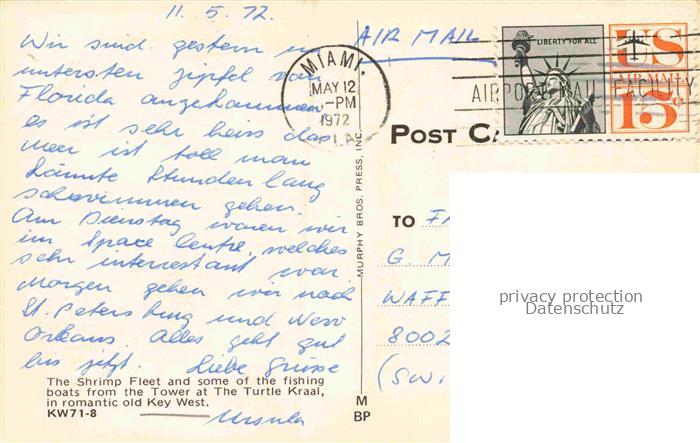 11. 5. 72.
Wir sind gestern im
untersten Zipfel von
Florida angekommen
es ist sehr heiss das
Meer ist toll man
könnte Stundenlang
schwimmen gehen.
Am Dienstag waren wir
im Space Centre, welches
sehr interressant war.
Morgen gehen wir nach
St. Petersburg und New
Orleans. Alles geht gut
bis jetzt. Liebe Grüsse
Ursula
The Shrimp Fleet and some of the fishing
boats from the Tower at The Turtle Kraal,
in romantic old Key West.
KW71-8
MURPHY BROS. PRESS, INC.
M
BP
AIR MAIL
MIAMI,
MAY 12
-PM
1972
LA.
AIRPORT MAIL FACILITY
LIBERTY FOR ALL
US
AIR MAIL
15¢
POST CA
TO
G. M
WAFF
8002
(SWI
privacy protection
Datenschutz